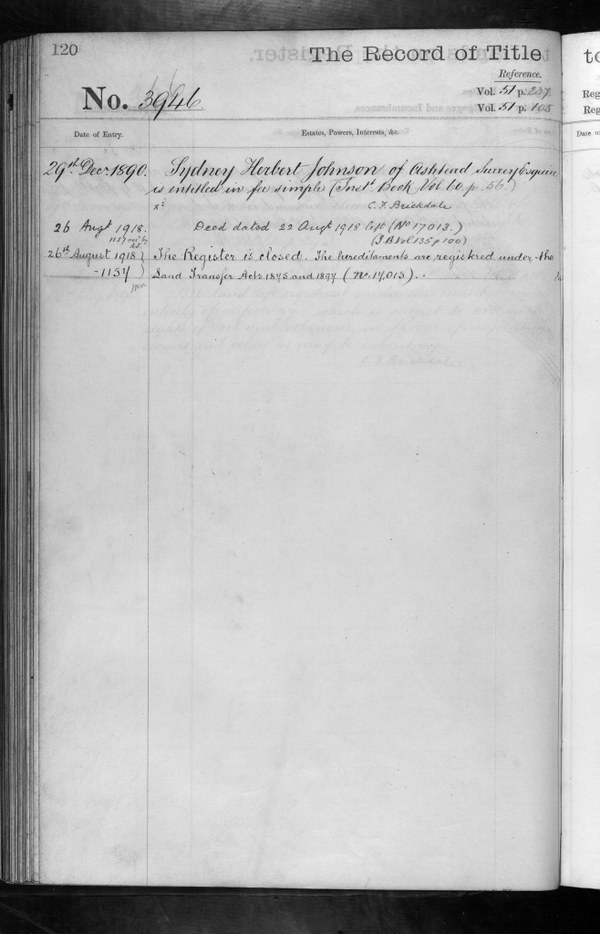 120
The Record of Title
Reference.
No. 3946
Vol. 51 p. 237
Vol. 51 p. 105
Date of Entry.
Estates, Powers, Interests, &c.
29th Decr. 1890. Sydney Herbert Johnson of Ashtead Surrey Esquire
is entitled in fee simple (Inst. Book Vol. 60. p. 56.)
C. F. Brickdale
26 Augt 1918. Deed dated 22 Augt 1918 (No 17013.)
(I B Vol 135 p 100)
26th August 1918 The Register is closed. The hereditaments are registered under the
-1157 Land Transfer Acts 1875 and 1897 (No. 17,013).
to
Reg
Reg
Date o